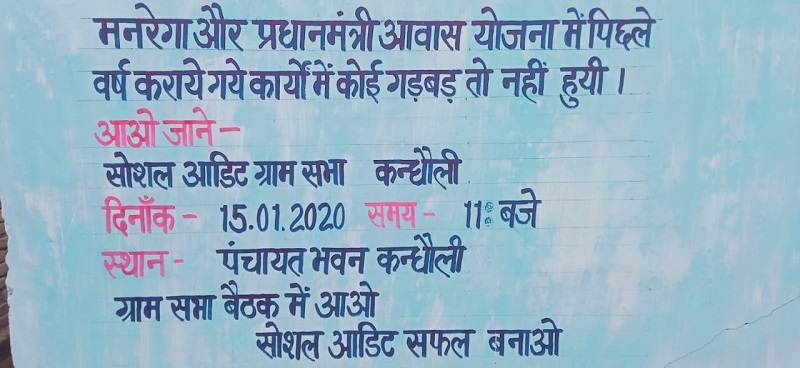 मनरेगा और प्रधानमंत्री आवास योजना में पिछले
वर्ष कराये गये कार्यो में कोई गड़बड़ तो नहीं हुयी ।
आओ जाने –
सोशल आडिट ग्राम सभा कन्धौली
दिनाँक – 15.01.2020 समय – 11: बजे
स्थान – पंचायत भवन कन्धौली
ग्राम सभा बैठक में आओ
सोशल आडिट सफल बनाओ